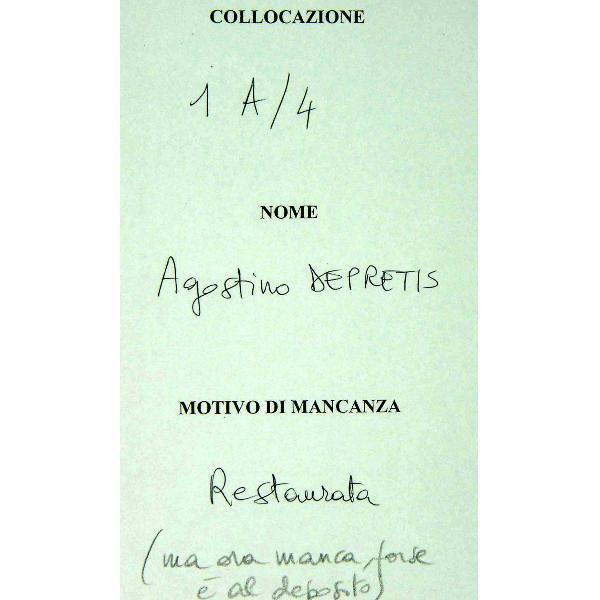 COLLOCAZIONE
1 A/4
NOME
Agostino DEPRETIS
MOTIVO DI MANCANZA
Restaurata
(ma ora manca, forse
è al deposito)